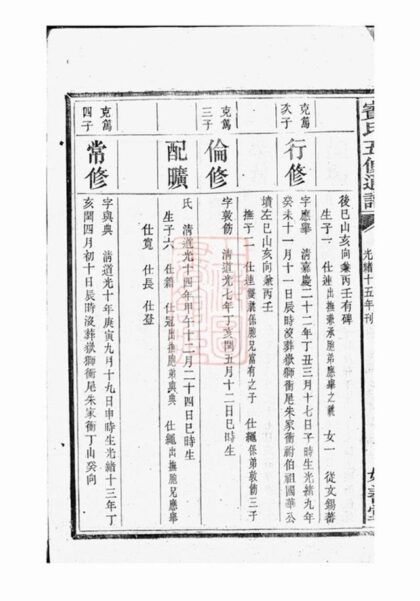 五修通譜
光緒十五年刊
後巳山亥向兼丙壬有碑
生子一 仕連出撫兼承胞弟應舉之嗣 女一 從文錫蕃
克篤次子
行修
字應舉 清嘉慶二十二年丁丑三月十七日子時生光緒九年
癸未十一月十一日辰時沒葬嶽獅衝尾朱家衝祔伯祖國華公
墳左巳山亥向兼丙壬
撫子二 仕連 仕繩係弟敎箭三子
克篤三子
倫修
字敦箭 清道光七年丁亥閏五月十二日巳時生
配曠
氏 清道光十四年甲午十二月二十四日巳時生
生子六 仕籍 仕冠出撫胞弟與典 仕繩出撫胞兄應舉
仕寬 仕長 仕登
克篤四子
常修
字與典 清道光十年庚寅九月十九日申時生光緒十三年丁
亥閏四月初十日辰時沒葬嶽獅衝尾朱家衝丁山癸向